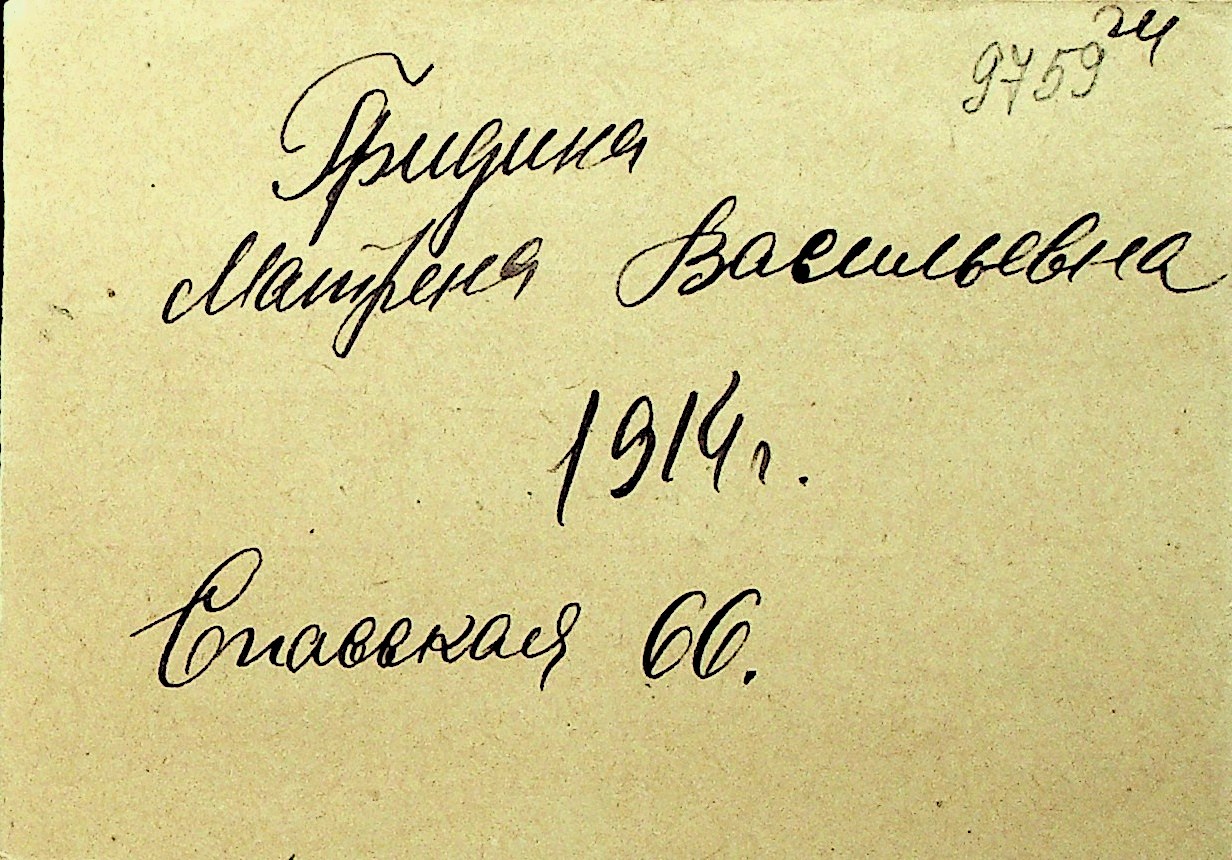 9759
Гридина
Матрена Васильевна
1914 г.
Спасская 66.